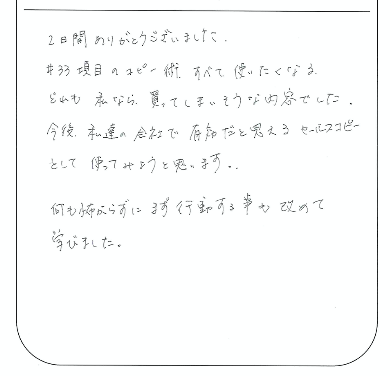 2日間ありがとうございました.
#33項目のコピー術 すべて使いたくなる
どれも 私なら 買ってしまいそうな内容でした.
今後 私達の会社で 有効だと思える セールスコピー
として 使ってみようと思います..
何も怖がらずに まず 行動する事も 改めて
学びました。